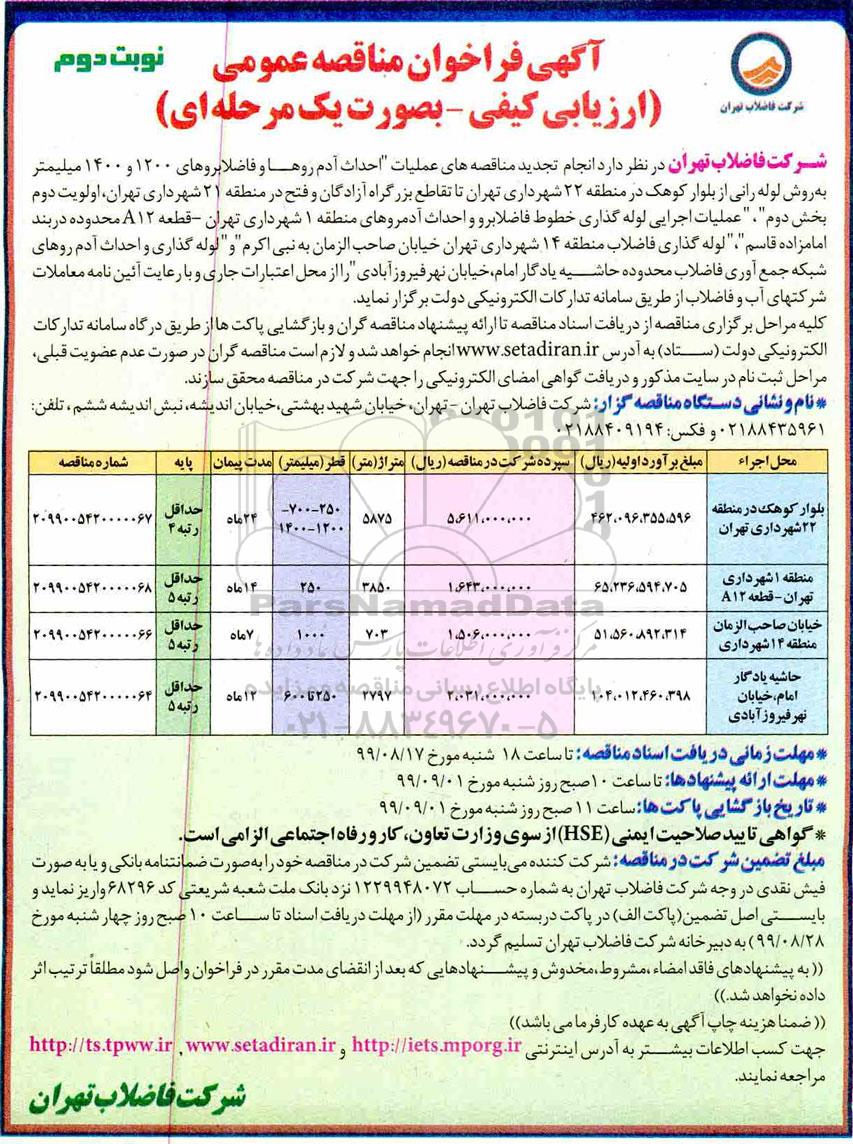 آگهی فراخوان مناقصه عمومی
(ارزیابی کیفی - بصورت یک مرحله ای)
نوبت دوم
شرکت فاضلاب تهران
شرکت فاضلاب تهران در نظر دارد انجام تجدید مناقصه های عملیات "احداث آدم روها و فاضلابروهای ۱۲۰۰ و ۱۴۰۰ میلیمتر
به روش لوله رانی از بلوار کوهک در منطقه ۲۲ شهرداری تهران تا تقاطع بزرگراه آزادگان و فتح در منطقه ۲۱ شهرداری تهران، اولویت دوم
بخش دوم"، "عملیات اجرایی لوله گذاری خطوط فاضلابرو و احداث آدمروهای منطقه ۱ شهرداری تهران - قطعه A۱۲ محدوده دربند
امامزاده قاسم"، "لوله گذاری فاضلاب منطقه ۱۴ شهرداری تهران خیابان صاحب الزمان به نبی اکرم" و "لوله گذاری و احداث آدم روهای
شبکه جمع آوری فاضلاب محدوده حاشیه یادگار امام، خیابان نهر فیروزآبادی" را از محل اعتبارات جاری و با رعایت آئین نامه معاملات
شرکتهای آب و فاضلاب از طریق سامانه تدارکات الکترونیکی دولت برگزار نماید.
کلیه مراحل برگزاری مناقصه از دریافت اسناد مناقصه تا ارائه پیشنهاد مناقصه گران و بازگشایی پاکت ها از طریق درگاه سامانه تدارکات
الکترونیکی دولت (ستاد) به آدرس www.setadiran.ir انجام خواهد شد و لازم است مناقصه گران در صورت عدم عضویت قبلی،
مراحل ثبت نام در سایت مذکور و دریافت گواهی امضای الکترونیکی را جهت شرکت در مناقصه محقق سازند.
*نام و نشانی دستگاه مناقصه گزار: شرکت فاضلاب تهران - تهران، خیابان شهید بهشتی، خیابان اندیشه، نبش اندیشه ششم، تلفن:
۰۲۱۸۸۴۳۵۹۶۱ و فکس: ۰۲۱۸۸۴۰۹۱۹۴
محل اجراء | مبلغ برآورد اولیه (ریال) | سپرده شرکت در مناقصه (ریال) | متراژ (متر) | قطر (میلیمتر) | مدت پیمان | پایه | شماره مناقصه
بلوار کوهک در منطقه ۲۲ شهرداری تهران | ۴۶۲،۰۹۶،۳۵۵،۵۹۶ | ۵،۶۱۱،۰۰۰،۰۰۰ | ۵۸۷۵ | ۲۵۰-۷۰۰-۱۲۰۰-۱۴۰۰ | ۲۴ ماه | حداقل رتبه ۴ | ۲۰۹۹۰۰۵۴۲۰۰۰۰۰۶۷
منطقه ۱ شهرداری تهران - قطعه A۱۲ | ۶۵،۲۳۶،۵۹۴،۷۰۵ | ۱،۶۴۳،۰۰۰،۰۰۰ | ۳۸۵۰ | ۲۵۰ | ۱۴ ماه | حداقل رتبه ۵ | ۲۰۹۹۰۰۵۴۲۰۰۰۰۰۶۸
خیابان صاحب الزمان منطقه ۱۴ شهرداری | ۵۱،۵۶۰،۸۹۲،۳۱۴ | ۱،۵۰۶،۰۰۰،۰۰۰ | ۷۰۳ | ۱۰۰۰ | ۷ ماه | حداقل رتبه ۵ | ۲۰۹۹۰۰۵۴۲۰۰۰۰۰۶۶
حاشیه یادگار امام، خیابان نهر فیروزآبادی | ۱۰۴،۰۱۲،۴۶۰،۳۹۸ | ۲،۰۳۱،۰۰۰،۰۰۰ | ۲۷۹۷ | ۲۵۰ تا ۶۰۰ | ۱۲ ماه | حداقل رتبه ۵ | ۲۰۹۹۰۰۵۴۲۰۰۰۰۰۶۴
ParsNamadData
مرکز فرآوری اطلاعات پارس نماد داده ها
پایگاه اطلاع رسانی مناقصه و مزایده
۰۲۱-۸۸۳۴۹۶۷۰-۵
*مهلت زمانی دریافت اسناد مناقصه: تا ساعت ۱۸ شنبه مورخ ۹۹/۰۸/۱۷
*مهلت ارائه پیشنهادها: تا ساعت ۱۰ صبح روز شنبه مورخ ۹۹/۰۹/۰۱
*تاریخ بازگشایی پاکت ها: ساعت ۱۱ صبح روز شنبه مورخ ۹۹/۰۹/۰۱
*گواهی تایید صلاحیت ایمنی (HSE) از سوی وزارت تعاون، کار و رفاه اجتماعی الزامی است.
مبلغ تضمین شرکت در مناقصه: شرکت کننده می بایستی تضمین شرکت در مناقصه خود را به صورت ضمانتنامه بانکی و یا به صورت
فیش نقدی در وجه شرکت فاضلاب تهران به شماره حساب ۱۲۲۹۹۴۸۰۷۲ نزد بانک ملت شعبه شریعتی کد ۶۸۲۹۶ واریز نماید و
بایستی اصل تضمین (پاکت الف) در پاکت دربسته در مهلت مقرر (از مهلت دریافت اسناد تا ساعت ۱۰ صبح روز چهار شنبه مورخ
۹۹/۰۸/۲۸) به دبیرخانه شرکت فاضلاب تهران تسلیم گردد.
(( به پیشنهادهای فاقد امضاء، مشروط، مخدوش و پیشنهادهایی که بعد از انقضای مدت مقرر در فراخوان واصل شود مطلقاً ترتیب اثر
داده نخواهد شد.))
(( ضمنا هزینه چاپ آگهی به عهده کارفرما می باشد))
جهت کسب اطلاعات بیشتر به آدرس اینترنتی http://iets.mporg.ir و www.setadiran.ir , http://ts.tpww.ir
مراجعه نمایند.
شرکت فاضلاب تهران